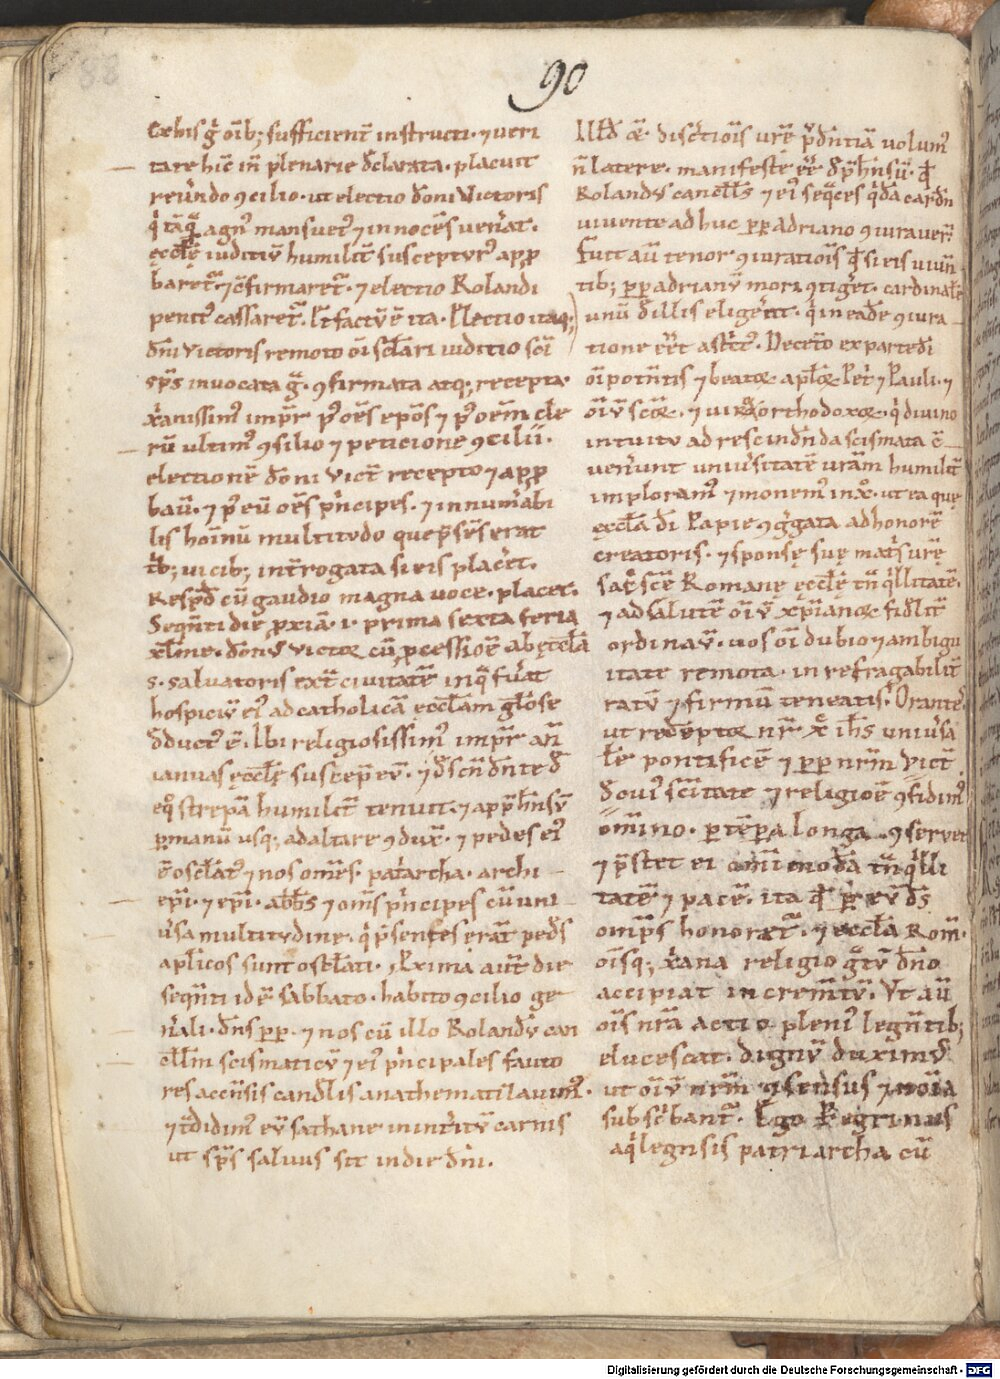 88
90
Ex his gͥ oīb; sufficient̄ instructi · ⁊ ueri
tate hic in plenarie d̄clarata · placuit
reuer̄ndo ꝯcilio · ut electio dom̄ni Victoris
q̇ tāq̄ agn᷒ mansuet᷒ ⁊ innocēs uenerat ·
ęccłę iuditiū humilit̄ suscepturus app̄
baret᷑ ⁊ cōfirmaret᷑ · ⁊ electio Rolandi
penit᷒ cassaret᷑ · Et factū ē ita · Electio itaq;
dn̄i Victoris remoto oī scłari iuditio sc̄i
sp̄s inuocata gͣ · ꝯfirmata atq; recepta ·
xp̄ianissim᷒ imp̄r p᷒ oēs ep̄os ⁊ p᷒ oēm cłe
rū ultim᷒ ꝯsilio ⁊ peticione ꝯcilii ·
electionē dom̄ni Vict̄ recepit ⁊ app̄
bauit · ⁊ p᷒ eū oēs p̄ncipes · ⁊ innum̄abi
lis hoīnū multitudo que p̄sēs erat
t̄b; uicib; int̄rogata si eis placet ·
Resp̄d cū gaudio magna uoce · placet ·
Seqn̄ti die ꝓxīa · i · prima sexta feria
Victor cū ꝓcessiōe ab ęccłā
s · saluatoris ext̄ ciuitatē in q̄ fuerat
hospiciū ei᷒ ad catholicā ęccłam głōse
d̄duct᷒ ē · Ubi religiosissim᷒ imp̄r an̄
ianuas ęccłę suscepit eū · ⁊ d̄scn̄dn̄te d̄
eq̊ strepā humilit̄ tenuit · ⁊ app̄hn̄sū
ꝑ manū usq; ad altare ꝯdux̄ · ⁊ pedes ei᷒
ē oscłat᷒ ⁊ nos omēs · pat̄archa · archi
ep̄i · ⁊ ep̄i · abb̄s ⁊ om̄s p̄ncipes cū uni
uersa multitudine · q̇ p̄sentes erāt ped̄s
apłicos sunt oscłati · Pxima aut̄ die
seqn̄ti idē sabbato · habito ꝯcilio ge
n̄ali · dn̄s pp̄ · ⁊ nos cū illo Rolandū can
cłłm scismaticū ⁊ ei᷒ p̄ncipales fauto
res accēsis candłis anathematizauim᷒ ·
⁊ t̄didim᷒ eū sathane in int̄itū carnis
ut sp̄s saluus sit in die dn̄i ·
Illd̄ · discretiōis ur̄ę p̄dn̄tiā uolum᷒
n̄ latere · manifeste eē d̄p̄hn̄sū · q̄
Rolandus cancłłs ⁊ ei᷒ seq̄ces q̇da card̄n
uiuente adhuc pp̄ adriano ꝯiurauer̄ ·
Fuit aū tenor ꝯiuratiōis q̄ si eis uiuē
tib; pp̄ adrianū mori ꝯtiget · cardinałē
unū d̄ illis eligerent · q̇ in eadē ꝯiura
tione eēt astrict᷒ · Deceto ex parte dī
oīpotn̄tis ⁊ beatoꝝ aplōꝝ Pet̄ ⁊ Pauli · ⁊
oīū sc̄oꝝ · ⁊ uiroꝝ orthodoxoꝝ · q̇ diuino
intuitu ad rescindn̄da scismata c̄
uen̄unt uniūsitatē uram humilit̄
imploram᷒ ⁊ monem᷒ in xp̄o · ut ea quę
ęccła dī Papie ꝯg̊gata ad honorē
creatoris · ⁊ sponsę suę mat̄s ur̄ę
sac̄s̄cē Romanę ęccłę t̄nq̇llitatē ·
⁊ ad salutē oīū xp̄ianoꝝ fidłit̄
ordinauit · uos oī dubio ⁊ ambigu
itate remota · in refragabilit̄
ratū ⁊ firmū teneatis · Orantes
ut redēptor nr̄ xp̄c ih̄s uniūsa
łē pontificē ⁊ pp̄ nrm̄ Vict̄
d̄ cui᷒ sc̄itate ⁊ religiōe ꝯfidim᷒
omīno · ꝑ tēpa longa · ꝯseruet
⁊ p̄stet ei omīmodā t̄nq̇lli
tatē ⁊ pacē · ita q̄ p̄ eū ds̄
omp̄s honoret᷑ · ⁊ ęccła Rom̄ ·
oīsq; xp̄iana religio g̊tū dn̄o
accipiat incremtū · Ut aū
oīs nr̄a actio pleni᷒ legn̄tib;
elucescat · dignū duxim᷒
ut oīū nrm̄ ꝯsensus ⁊ noīa
subsc̄bant᷑ · Ego Peregrinus
aq̇legn̄sis patriarcha cū
Digitalisierung gefördert durch die Deutsche Forschungsgemeinschaft - DFG